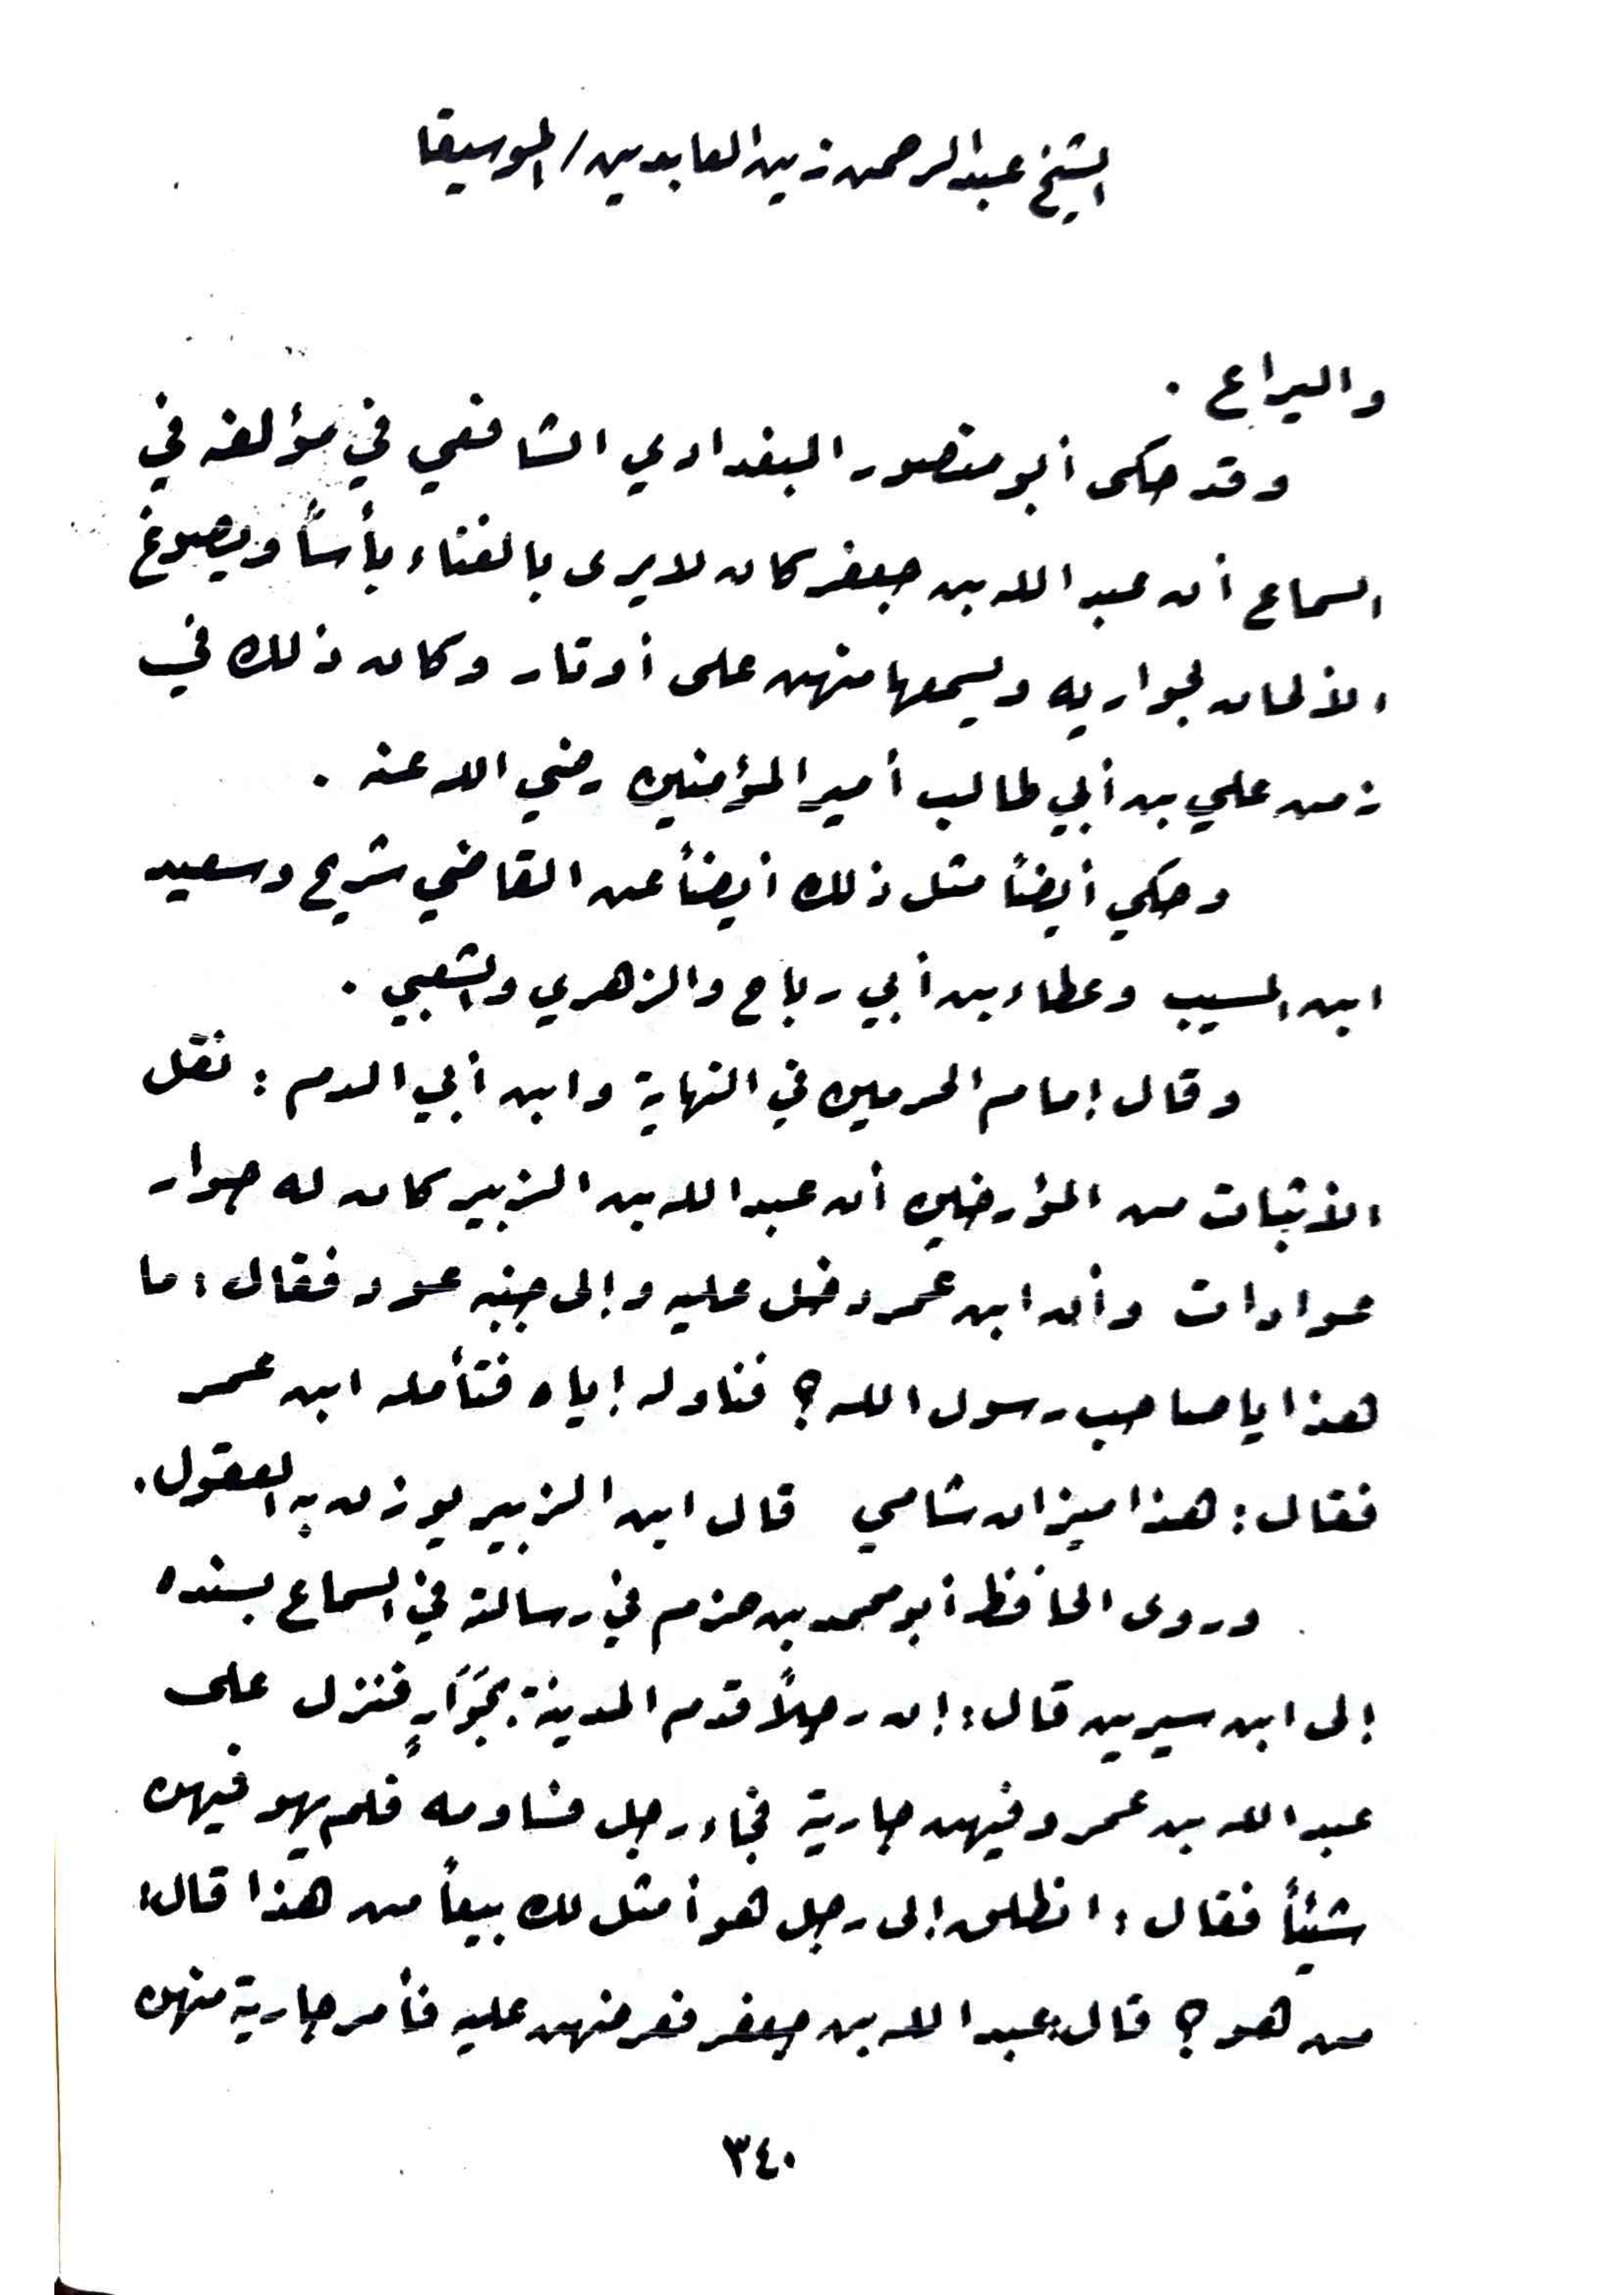 الشيخ عبد الرحمن زين العابدين / الموسيقا
واليراع .
وقد حكى أبو منصور البغدادي الشافعي في مؤلفه في
السماع أن عبد الله بن جعفر كان لا يرى بالغناء بأساً ويصوغ
الألحان لجواريه ويسمعها منهن على أوتار وكان ذلك في
زمن علي بن أبي طالب أمير المؤمنين رضي الله عنه .
وحكي أيضاً مثل ذلك أيضاً عن القاضي شريح وسعيد
ابن المسيب وعطاء بن أبي رباح والزهري والشعبي .
وقال إمام الحرمين في النهاية وابن أبي الدم : نقل
الأثبات من المؤرخين أن عبد الله بن الزبير كان له جوار
عوادات وأن ابن عمر دخل عليه وإلى جنبه عود فقال : ما
هذا يا صاحب رسول الله ؟ فناوله إياه فتأمله ابن عمر
فقال : هذا ميزان شامي قال ابن الزبير يوزن به العقول .
وروى الحافظ أبو محمد بن حزم في رسالته في السماع بسنده
إلى ابن سيرين قال : إن رجلاً قدم المدينة بجَوَارٍ فنزل على
عبد الله بن عمر وفيهن جارية فجاء رجل فساومه فلم يهو فيهن
شيئاً فقال : انطلق إلى رجل هو أمثل لك بيعاً من هذا قال :
من هو ؟ قال : عبد الله بن جعفر فعرضهن عليه فأمر جارية منهن
٣٤٠